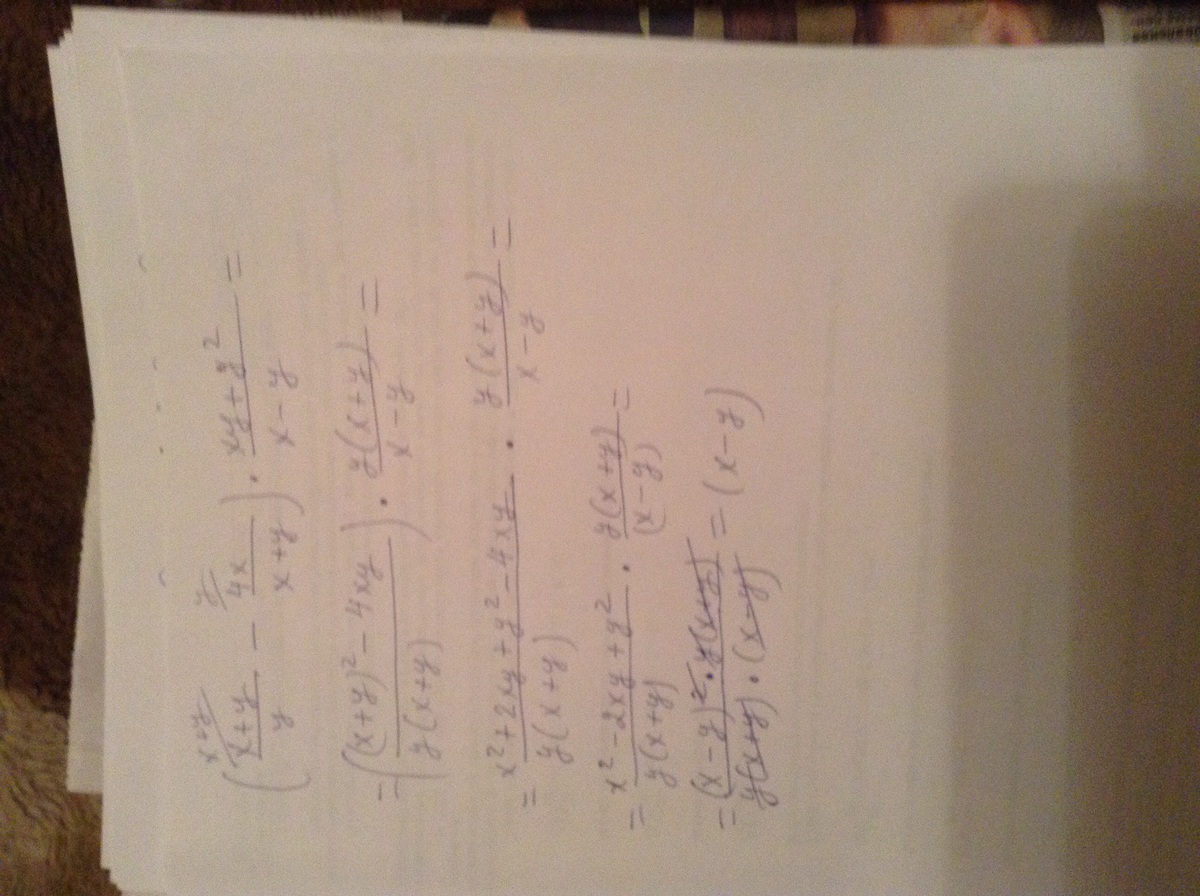 (\frac{x+y}{y}^{x+y} - \frac{4x}{x+y}^{y}) · \frac{xy+y^2}{x-y} =
= (\frac{(x+y)^2-4xy}{y(x+y)}) · \frac{y(x+y)}{x-y} =
= \frac{x^2+2xy+y^2-4xy}{y(x+y)} · \frac{y(x+y)}{x-y} =
= \frac{x^2-2xy+y^2}{y(x+y)} · \frac{y(x+y)}{(x-y)} =
= \frac{(x-y)^2·y(x+y)}{y(x+y)·(x-y)} = (x-y)